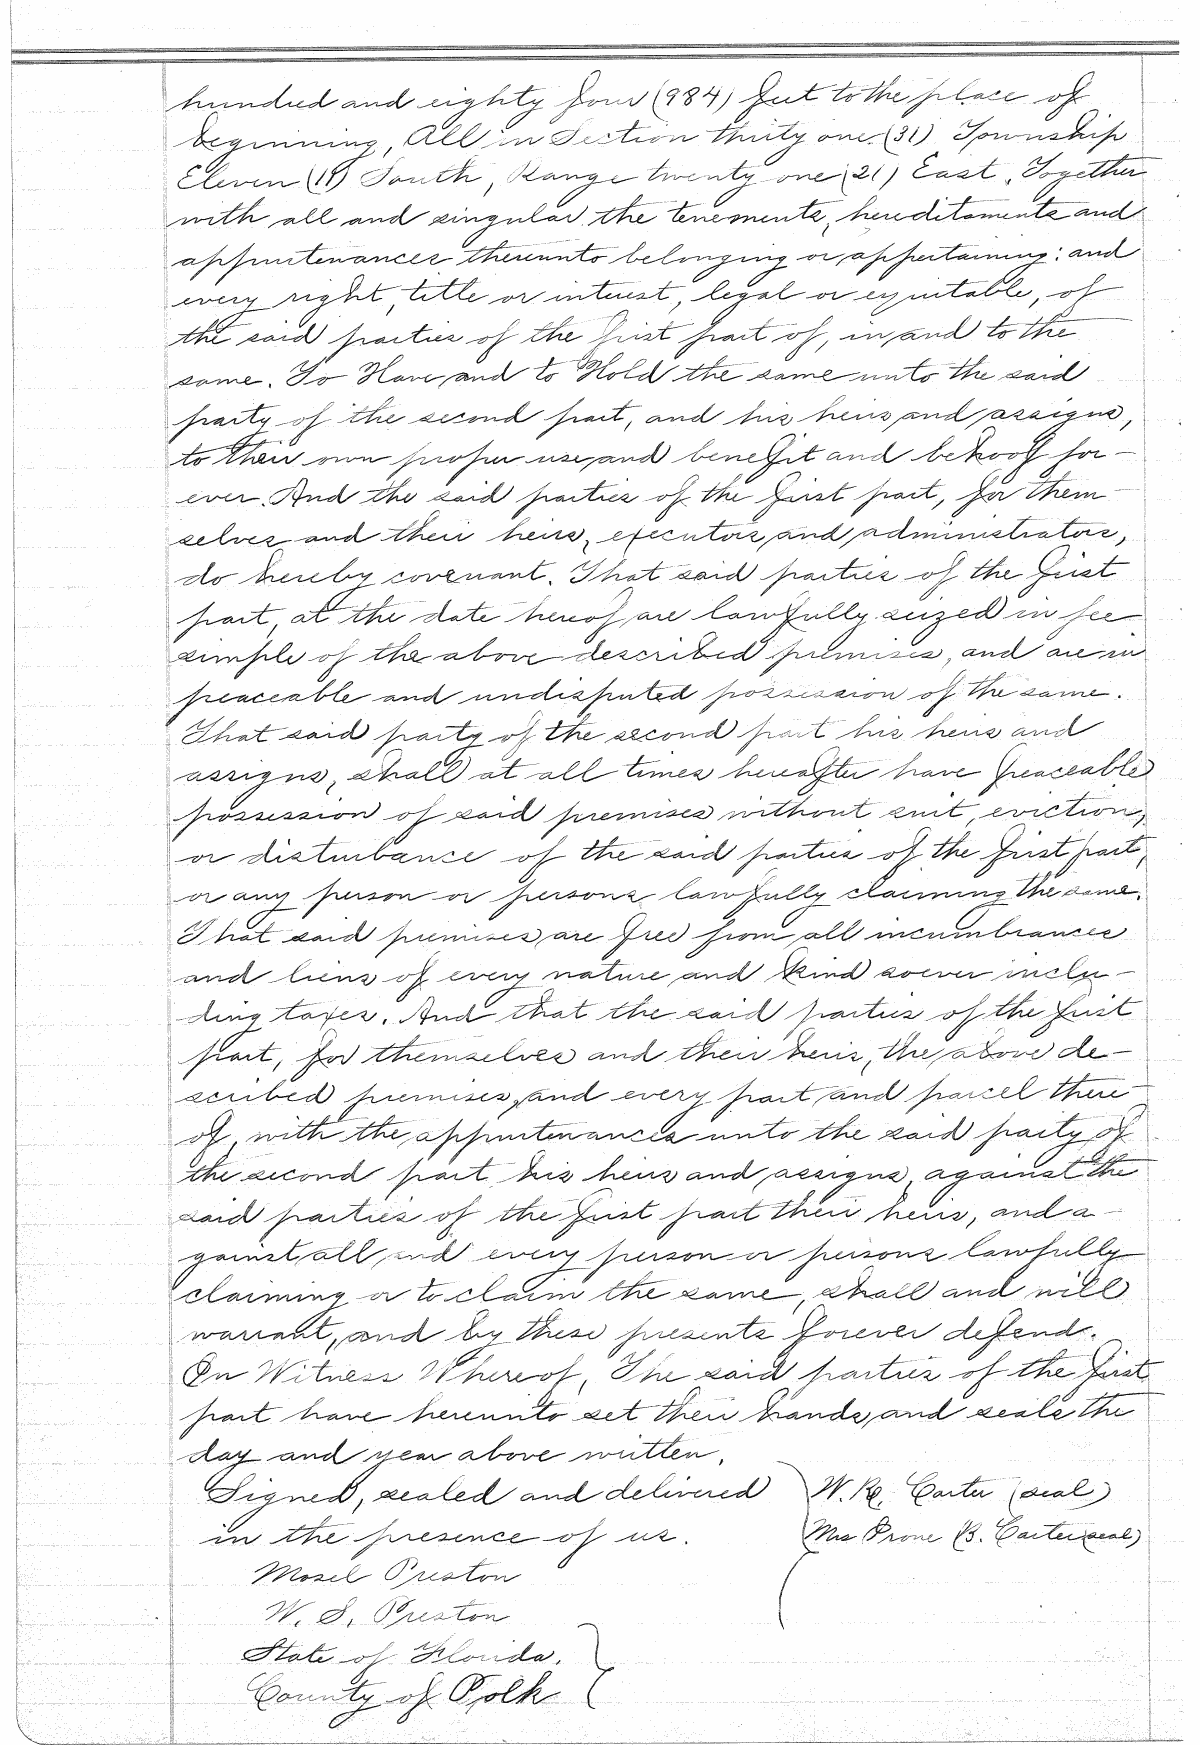 hundred and eighty four (984) feet to the place of
beginning, All in Section thirty one (31) Township
Eleven (11) South, Range twenty one (21) East, Together
with all and singular the tenements, hereditaments and
appurtenances thereunto belonging or appertaining: and
every right, title or interest, legal or equitable, of
the said parties of the first part of, in and to the
same. To Have and to Hold the same unto the said
party of the second part, and his heirs and assigns,
to their own proper use and benefit and behoof for-
ever. And the said parties of the first part, for them-
selves and their heirs, executors and administrators,
do hereby covenant. That said parties of the first
part, at the date hereof are lawfully seized in fee
simple of the above described premises, and are in
peaceable and undisputed possession of the same.
That said party of the second part his heirs and
assigns, shall at all times hereafter have peaceable
possession of said premises without suit, eviction,
or disturbance of the said parties of the first part,
or any person or persons lawfully claiming the same.
That said premises are free from all incumbrances
and liens of every nature and kind soever inclu-
ding taxes. And that the said parties of the first
part, for themselves and their heirs, the above de-
scribed premises, and every part and parcel there-
of, with the appurtenances unto the said party of
the second part his heirs and assigns, against the
said parties of the first part their heirs, and a-
gainst all and every person or persons lawfully
claiming or to claim the same, shall and will
warrant, and by these presents forever defend.
In Witness Whereof, The said parties of the first
part have hereunto set their hands and seals the
day and year above written.
Signed, sealed and delivered W. R. Carter (seal)
in the presence of us. Mrs Prone B. Carter (seal)
Mosel Preston
W. S. Preston
State of Florida.
County of Polk